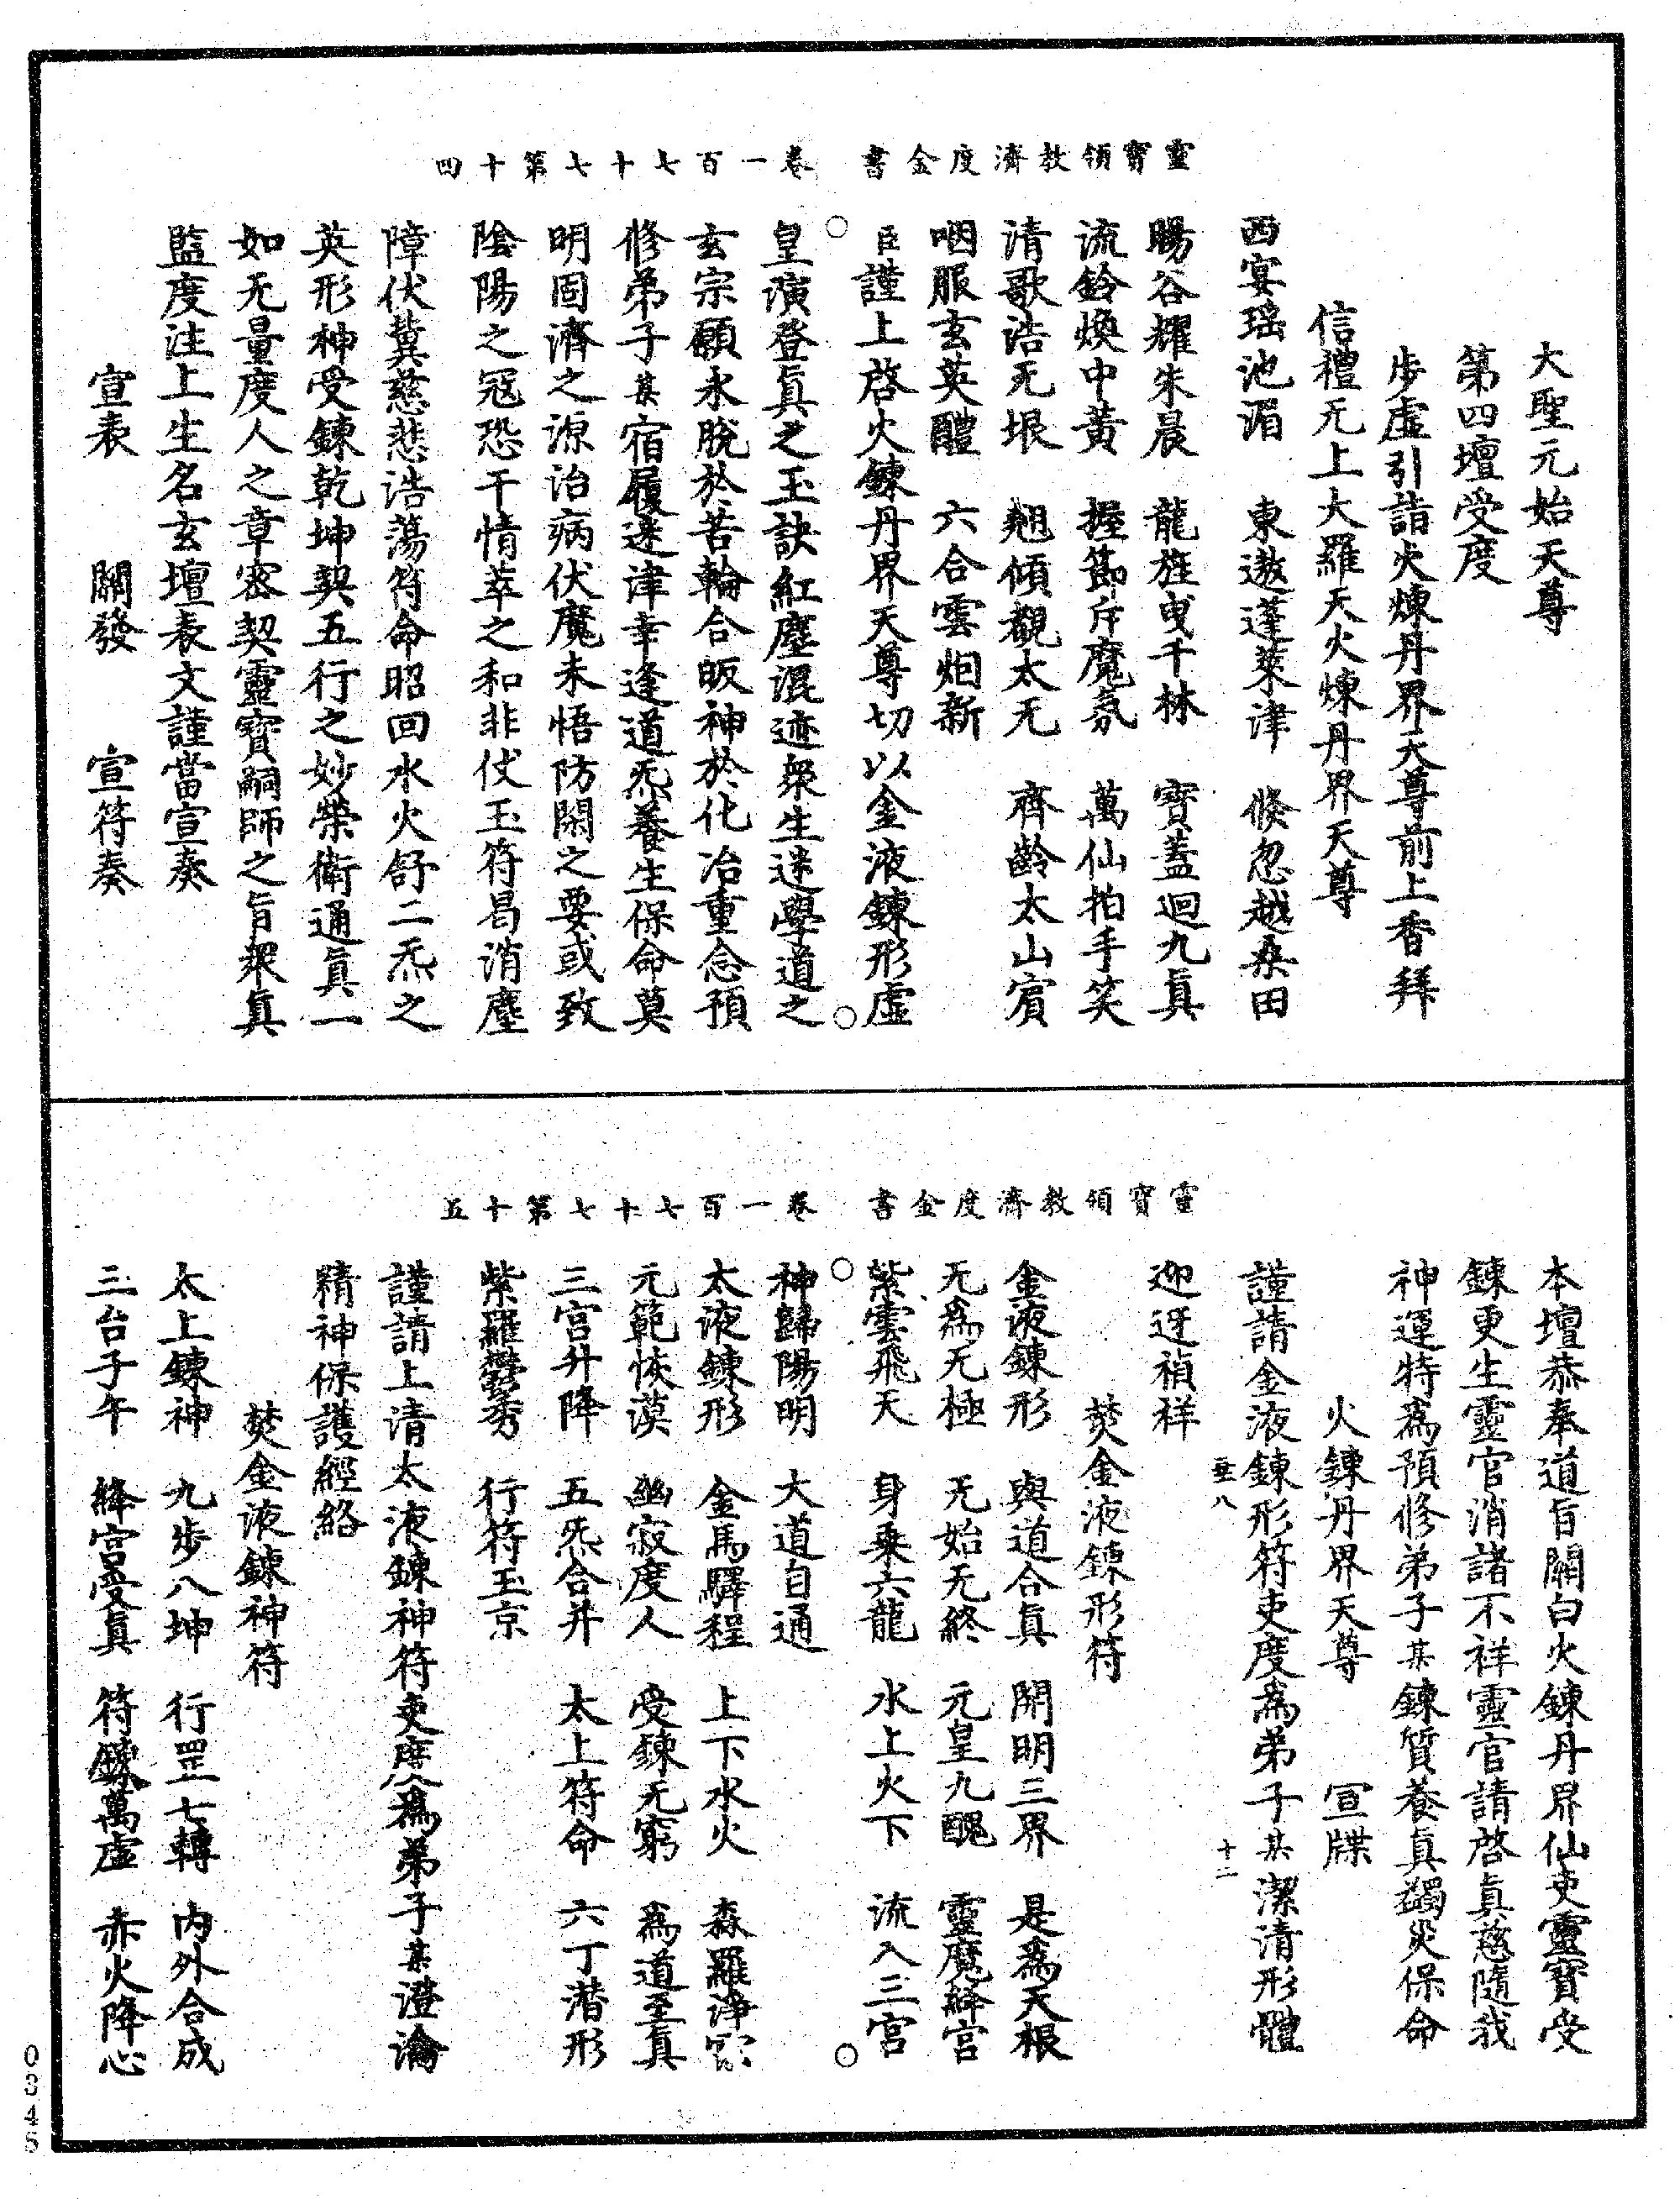 靈寶領教濟度金書　卷一百七十七第十四
大聖元始天尊
第四壇受度
步虛引詣火煉丹界天尊前上香拜
信禮无上大羅天火煉丹界天尊
西宴瑤池湄　東遨蓬萊津　倐忽越桑田
暘谷耀朱晨　龍旌曳千林　寶蓋迴九眞
流鈴煥中黃　握節斥魔氛　萬仙拍手笑
清歌浩无垠　翹傾觀太无　齊齡太山賔
咽服玄英醴　六合雲炮新
臣謹上啓火鍊丹界天尊切以金液鍊形虛
皇演登眞之玉訣紅塵混迹衆生迷學道之
玄宗願永脫於苦輪合皈神於化冶重念預
修弟子某宿履迷津幸逢道炁養生保命莫
明固濟之源治病伏魔未悟防閑之要或致
陰陽之冦恐干情萃之和非仗玉符曷消塵
障伏冀慈悲浩蕩符命昭回水火舒二炁之
英形神受鍊乾坤契五行之妙榮衛通眞一
如无量度人之章密契靈寶嗣師之旨衆眞
監度注上生名玄壇表文謹當宣奏
宣表　關發　宣符奏
靈寶領教濟度金書　卷一百七十七第十五
本壇恭奉道旨關白火鍊丹界仙吏靈寶受
鍊更生靈官消諸不祥靈官請啓眞慈隨我
神運特爲預修弟子某鍊質養眞蠲災保命
火鍊丹界天尊　宣牒
謹請金液鍊形符吏度爲弟子某潔清形體
八　十二
迎迓禎祥
焚金液鍊形符
金液鍊形　與道合眞　開明三界　是爲天根
无爲无極　无始无終　元皇九醜　靈魔絳宫
紫雲飛天　身乗六龍　水上火下　流入三宫
神歸陽明　大道自通
太液鍊形　金馬驛程　上下水火　森羅淨
元範恢漠　幽寂度人　受鍊无窮　爲道至眞
三宫升降　五炁合并　太上符命　六丁潜形
紫羅鬱秀　行符玉京
謹請上清太液鍊神符吏度爲弟子某澄瀹
精神保護經絡
焚金液鍊神符
太上鍊神　九步八坤　行罡七轉　内外合成
三台子午　絳宫受眞　符鍊萬虛　赤火降心
0345